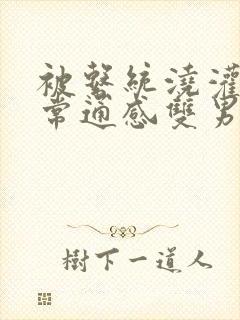 被繫統澆灌
常通感雙男
樹下一道人